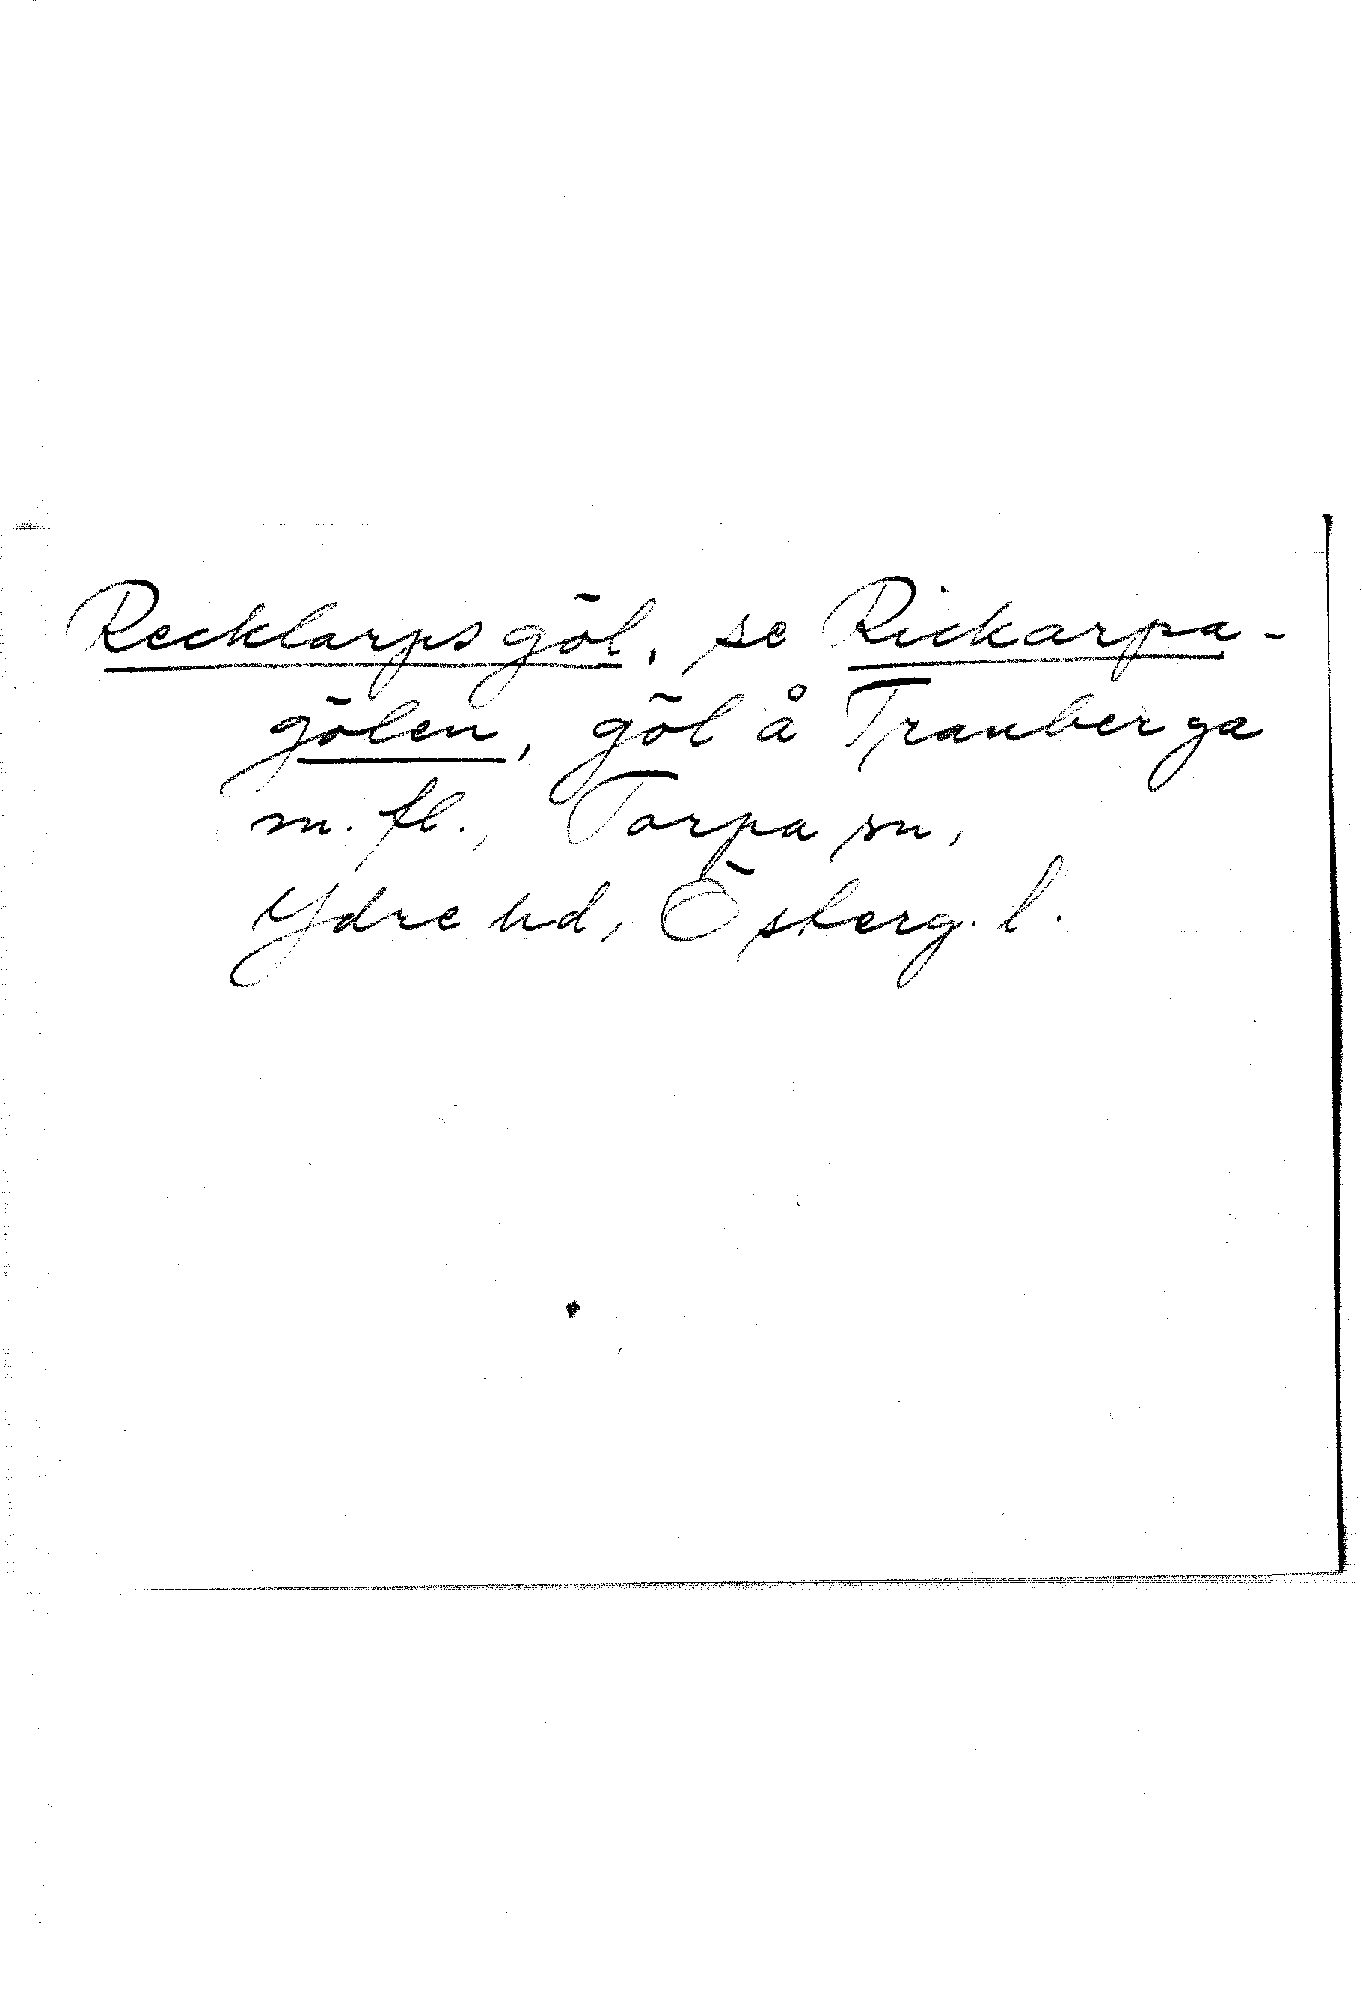 Recklarps göl, se Rickarpa-
gölen, göl å Tranberga
m. fl., Torpa sn,
Ydre hd, Östberg. l.